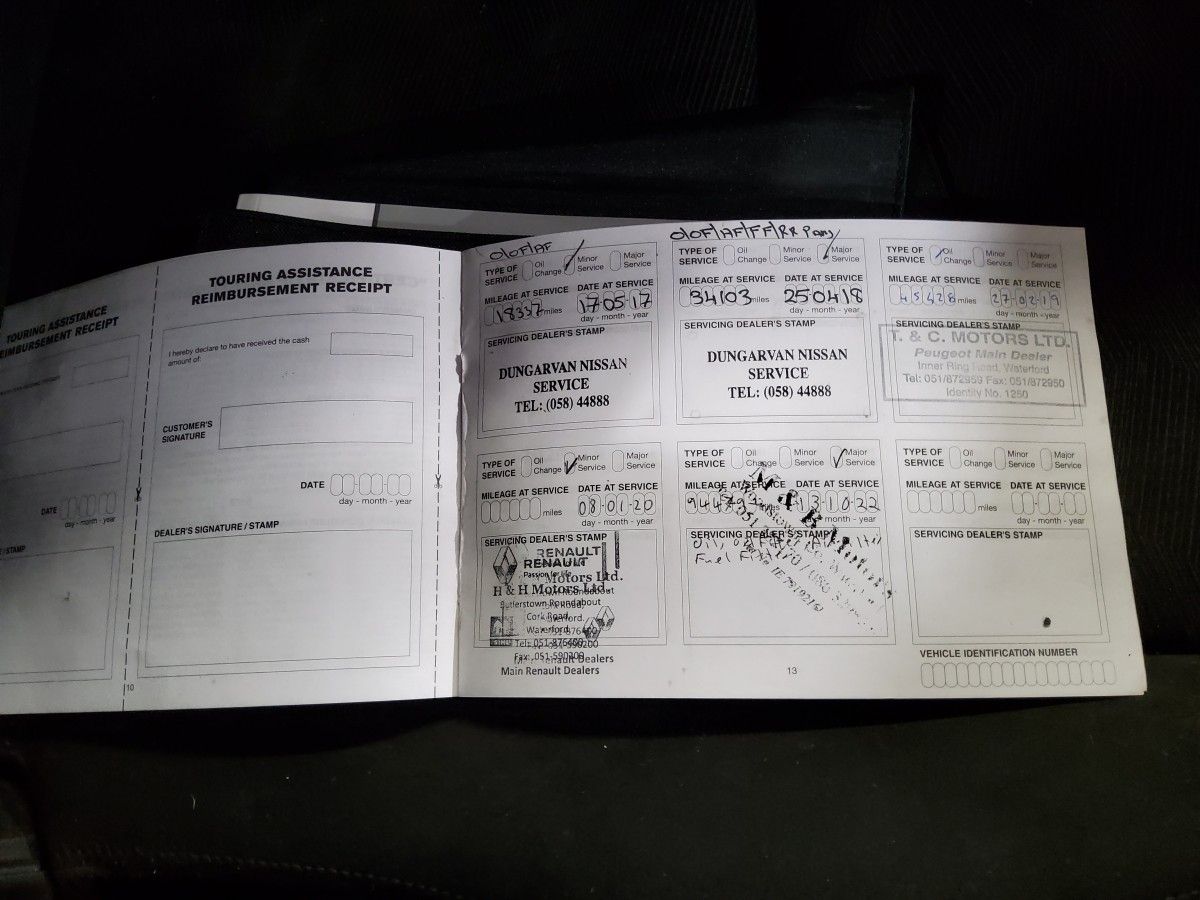 TOURING ASSISTANCE
REIMBURSEMENT RECEIPT
DATE
day - month - year
/ STAMP
TOURING ASSISTANCE
REIMBURSEMENT RECEIPT
I hereby declare to have received the cash
amount of:
CUSTOMER'S
SIGNATURE
DATE
day - month - year
DEALER'S SIGNATURE / STAMP
10
O/OF/AF
TYPE OF SERVICE Oil Change Minor Service Major Service
MILEAGE AT SERVICE DATE AT SERVICE
18337 miles 17 05 17
day - month - year
SERVICING DEALER'S STAMP
DUNGARVAN NISSAN
SERVICE
TEL: (058) 44888
O/OF/AF/FF/RR
TYPE OF SERVICE Oil Change Minor Service Major Service
MILEAGE AT SERVICE DATE AT SERVICE
34103 miles 25 04 18
day - month - year
SERVICING DEALER'S STAMP
DUNGARVAN NISSAN
SERVICE
TEL: (058) 44888
TYPE OF SERVICE Oil Change Minor Service Major Service
MILEAGE AT SERVICE DATE AT SERVICE
45428 miles 27 02 19
day - month - year
SERVICING DEALER'S STAMP
T. & C. MOTORS LTD.
Peugeot Main Dealer
Inner Ring Road, Waterford
Tel: 051/872959 Fax: 051/872950
Identity No. 1250
TYPE OF SERVICE Oil Change Minor Service Major Service
MILEAGE AT SERVICE DATE AT SERVICE
miles 08 01 20
day - month - year
SERVICING DEALER'S STAMP
RENAULT
RENAULT
Passion for life
Motors Ltd.
H & H Motors Ltd.
Butlerstown Roundabout
Cork Road,
Waterford.
Tel: 051-876400
Fax: 051-590200
Renault Dealers
Main Renault Dealers
TYPE OF SERVICE Oil Change Minor Service Major Service
MILEAGE AT SERVICE DATE AT SERVICE
13 10 22
day - month - year
SERVICING DEALER'S STAMP
Oil,
Fuel
13
TYPE OF SERVICE Oil Change Minor Service Major Service
MILEAGE AT SERVICE DATE AT SERVICE
miles
day - month - year
SERVICING DEALER'S STAMP
VEHICLE IDENTIFICATION NUMBER